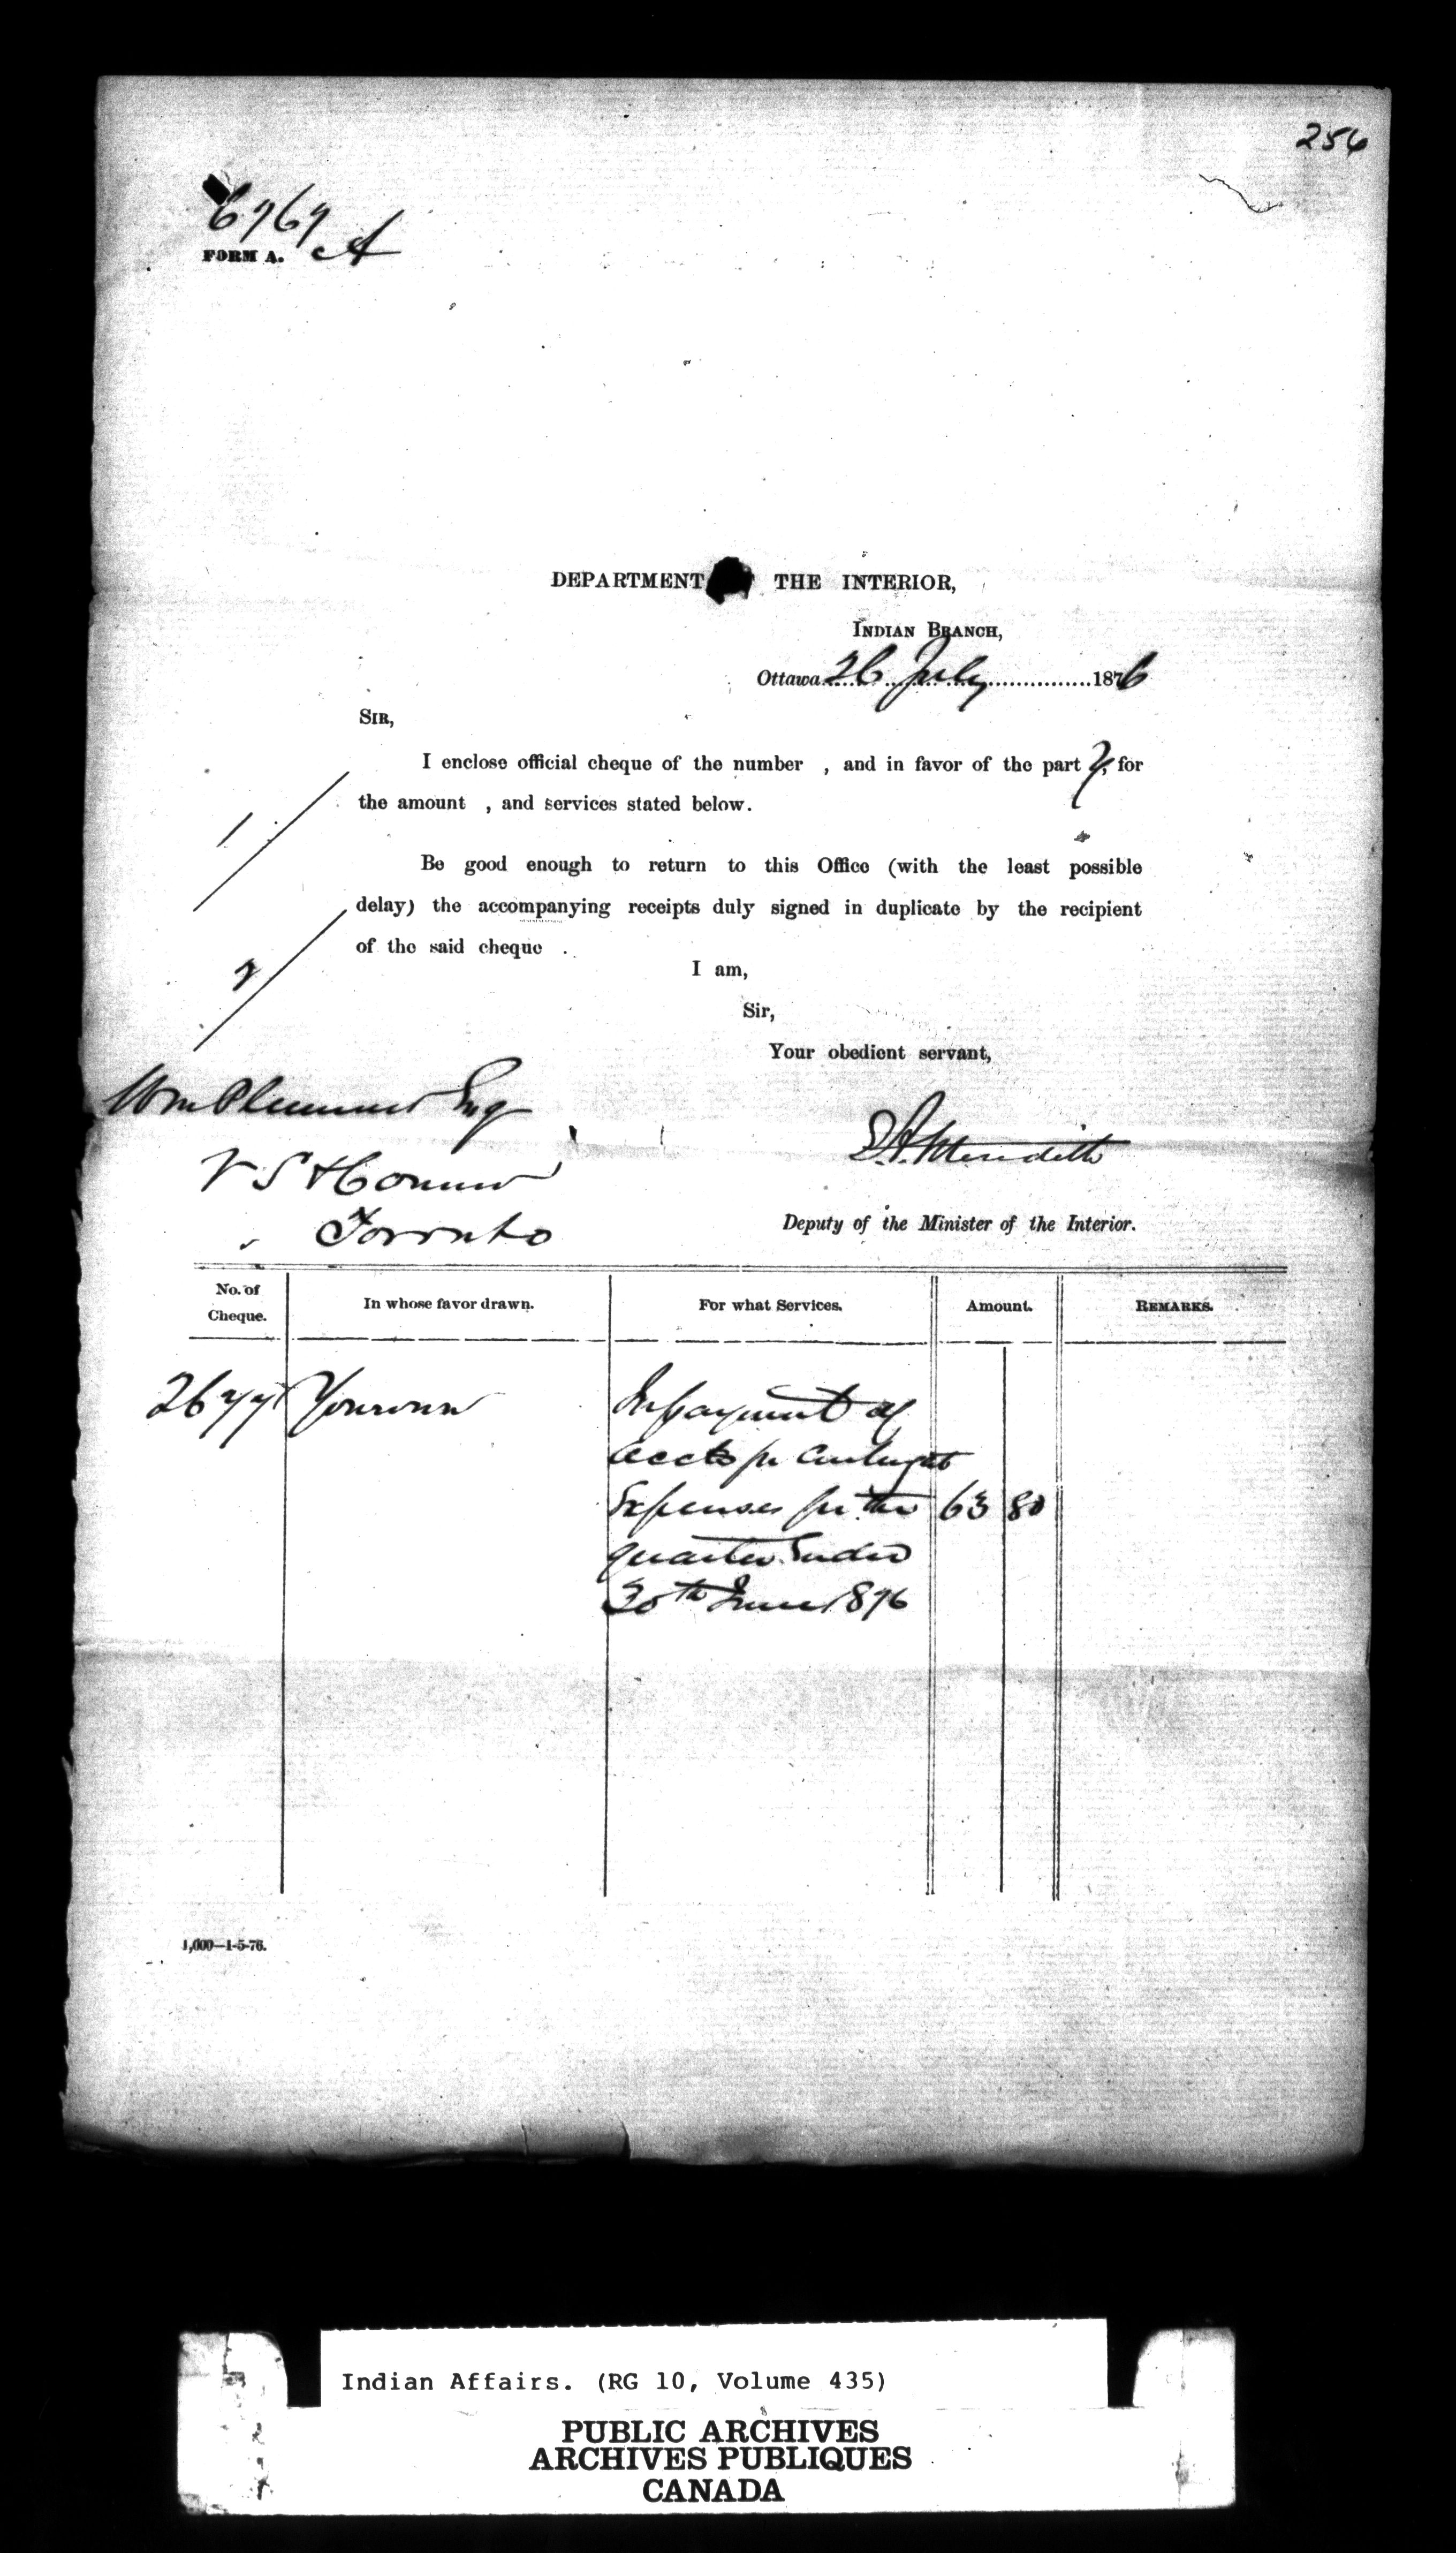 256
6767
FORM A. A
DEPARTMENT THE INTERIOR,
INDIAN BRANCH,
Ottawa 26 July 1876
SIR,
I enclose official cheque of the number , and in favor of the part y, for
the amount , and services stated below.
Be good enough to return to this Office (with the least possible
delay) the accompanying receipts duly signed in duplicate by the recipient
of the said cheque .
I am,
Sir,
Your obedient servant,
Wm Plummer Esq
V S & Commr
Toronto
E.A. Meredith
Deputy of the Minister of the Interior.
No. of Cheque. In whose favor drawn. For what Services. Amount. REMARKS.
2677 Yourown In payment of
accts for Contingt
Expenses for the 63 80
quarter Ended
30th June 1876
1,000—1-5-76.
Indian Affairs. (RG 10, Volume 435)
PUBLIC ARCHIVES
ARCHIVES PUBLIQUES
CANADA